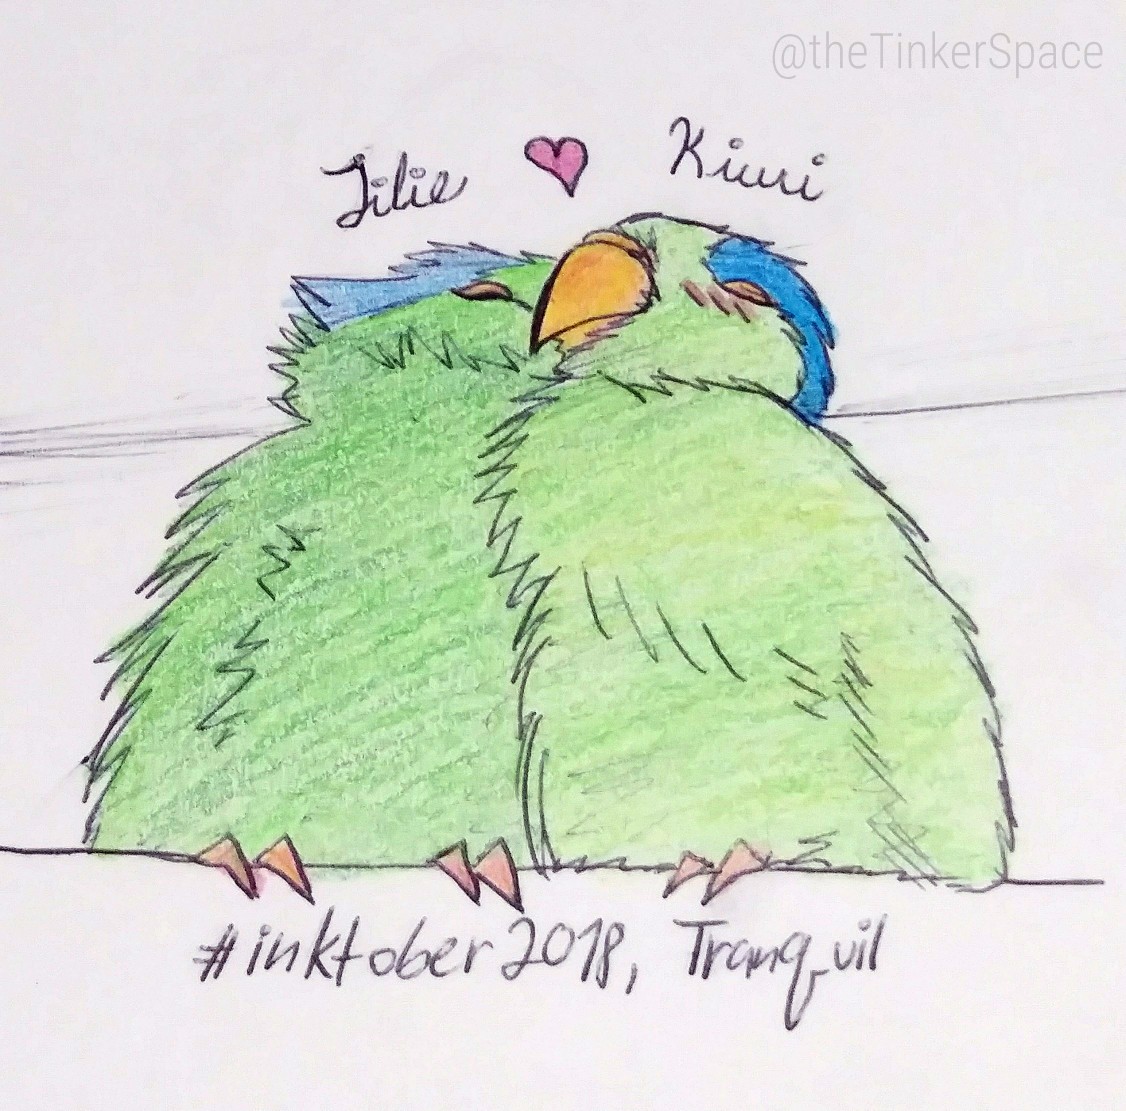 @theTinkerSpace
Jilie Kiwi
#inktober2018, Tranquil